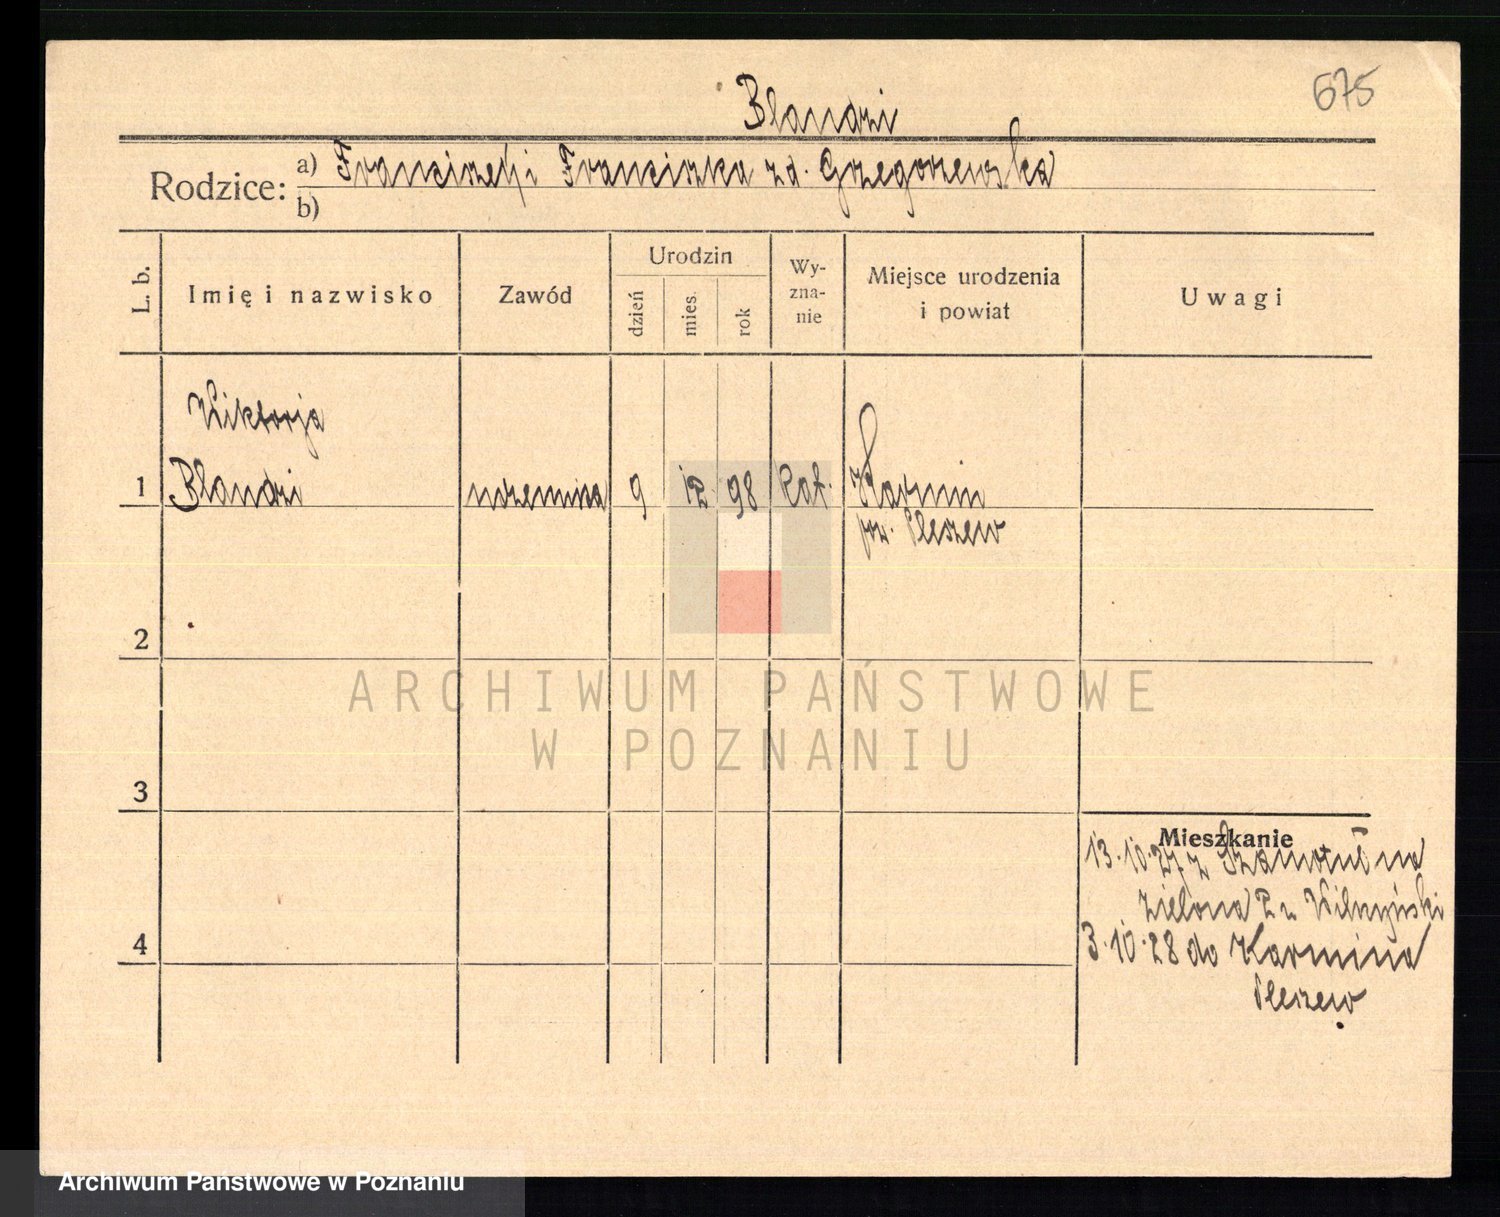 675
Blandzi
Rodzice:
a) Franciszek i Franciszka zd. Grzegorzewska
b)
L. b.
Imię i nazwisko
Zawód
Urodzin
dzień
mies.
rok
Wy-
zna-
nie
Miejsce urodzenia
i powiat
Uwagi
Wiktorja
1 Blandzi uczennica 9 12 98 kat. Karmin
pow. Pleszew
2
3
4
Mieszkanie
13.10.27 z Szamotuł na
Zielona 2 u
3.10.28 do Karmina
Pleszew
ARCHIWUM PAŃSTWOWE
W POZNANIU
Archiwum Państwowe w Poznaniu